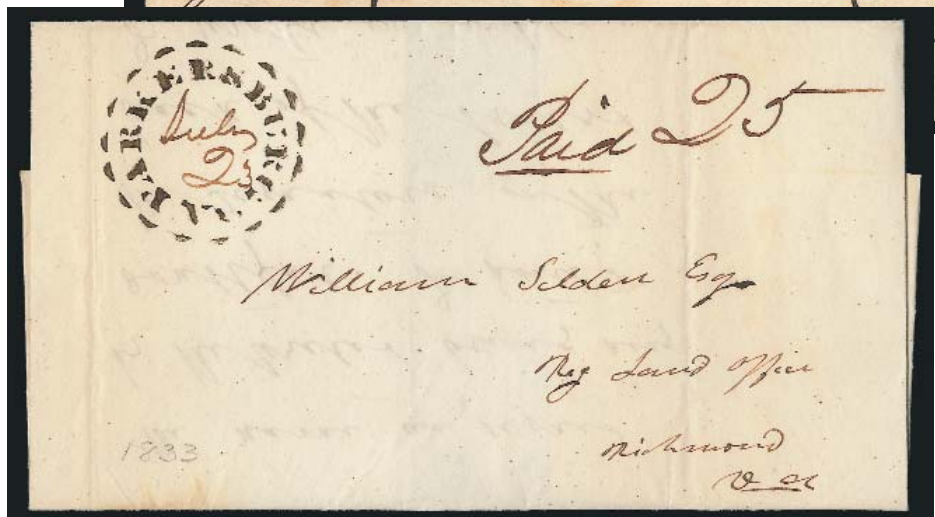 PARKERSBURG VA
July
25
Paid 25
William Selden Esq
Reg Land Office
Richmond
Va
1833